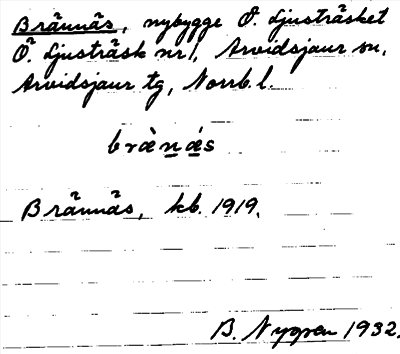 Brännäs, nybygge Ö. Ljusträsket
Ö. Ljusträsk nr 1, Arvidsjaur sn,
Arvidsjaur tg, Norrb. l.
brànǽs
Brännäs, kb. 1919.
B. Nygren 1932.